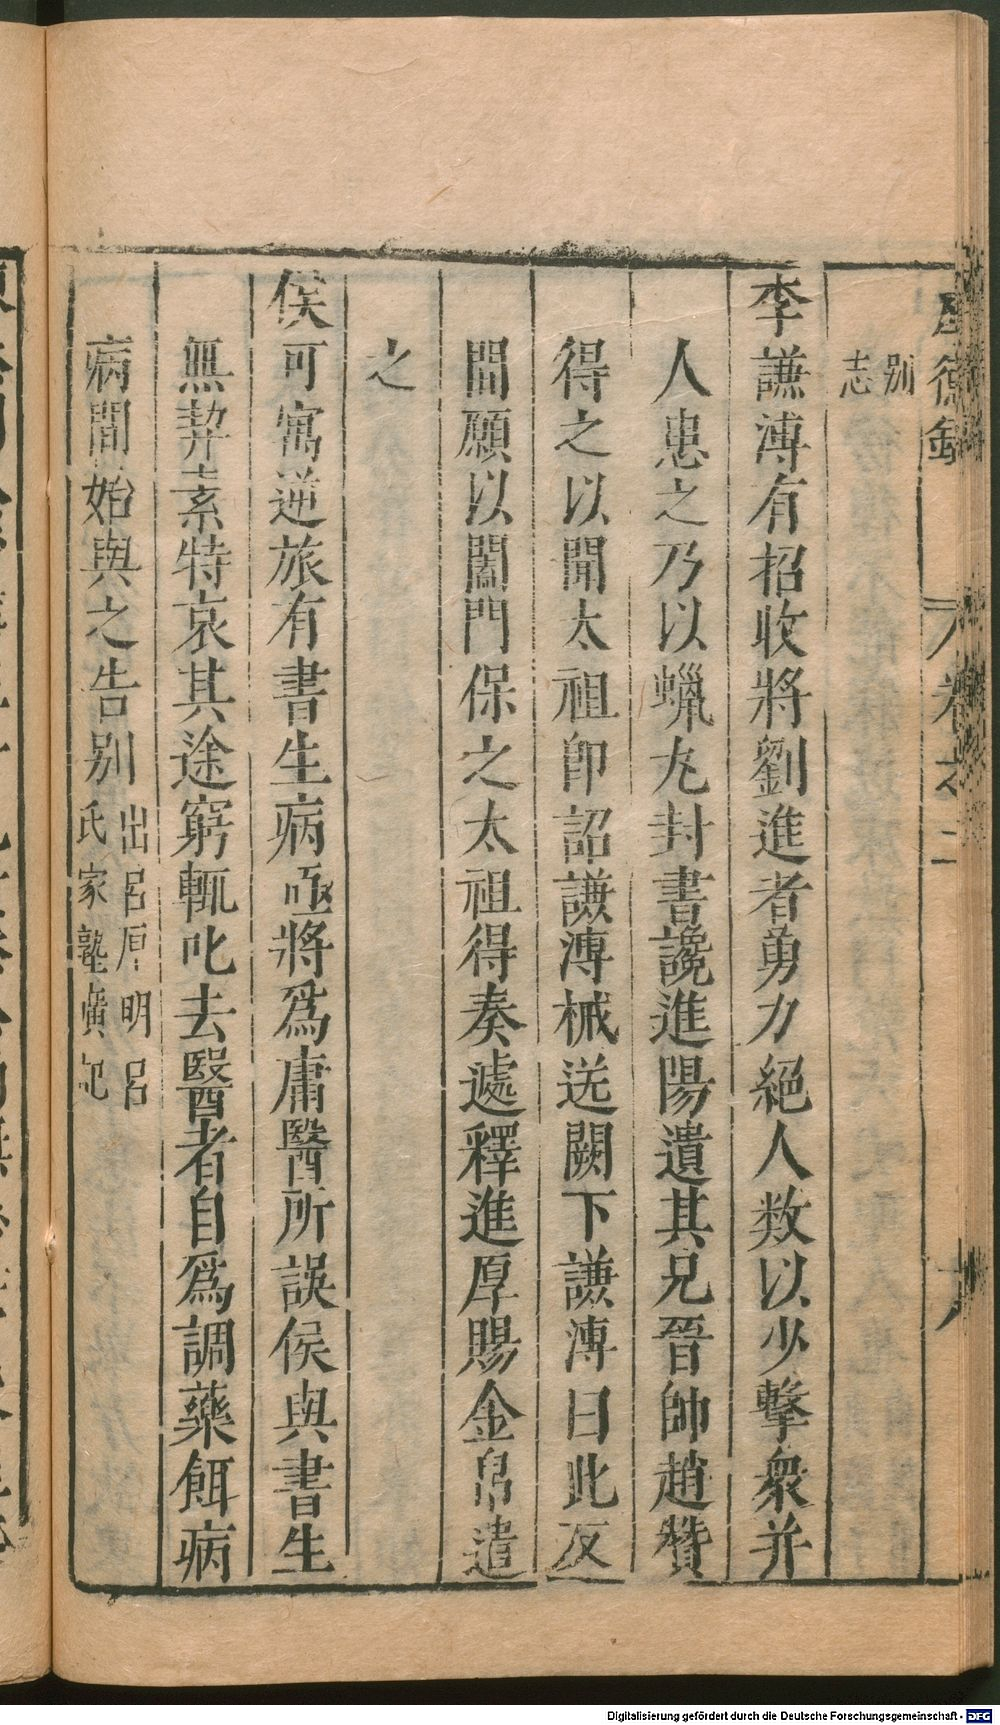 別志
李謙溥有招收將劉進者勇力絕人数以少擊衆并
人患之乃以蠟丸封書讒進陽遺其兄晉帥趙贊
得之以聞太祖即詔謙溥械送闕下謙溥曰此反
間願以闔門保之太祖得奏遽釋進厚賜金帛遣
之
侯可寓逆旅有書生病亟將爲庸醫所誤侯與書生
無契素特哀其途窮輒叱去醫者自爲調藥餌病
病間始與之告别出呂原明呂氏家塾廣記
卷之二
Digitalisierung gefördert durch die Deutsche Forschungsgemeinschaft - DFG